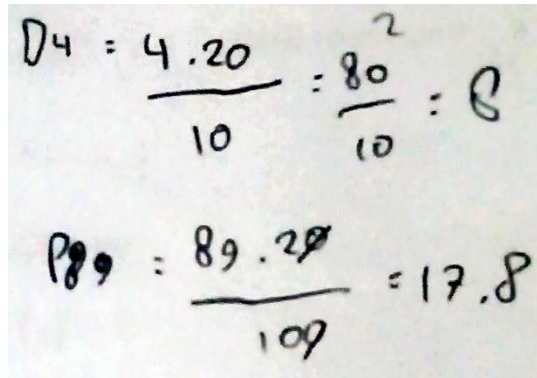 D4 = 4.20 / 10 = 80² / 10 = 8
P89 = 89.20 / 100 = 17.8